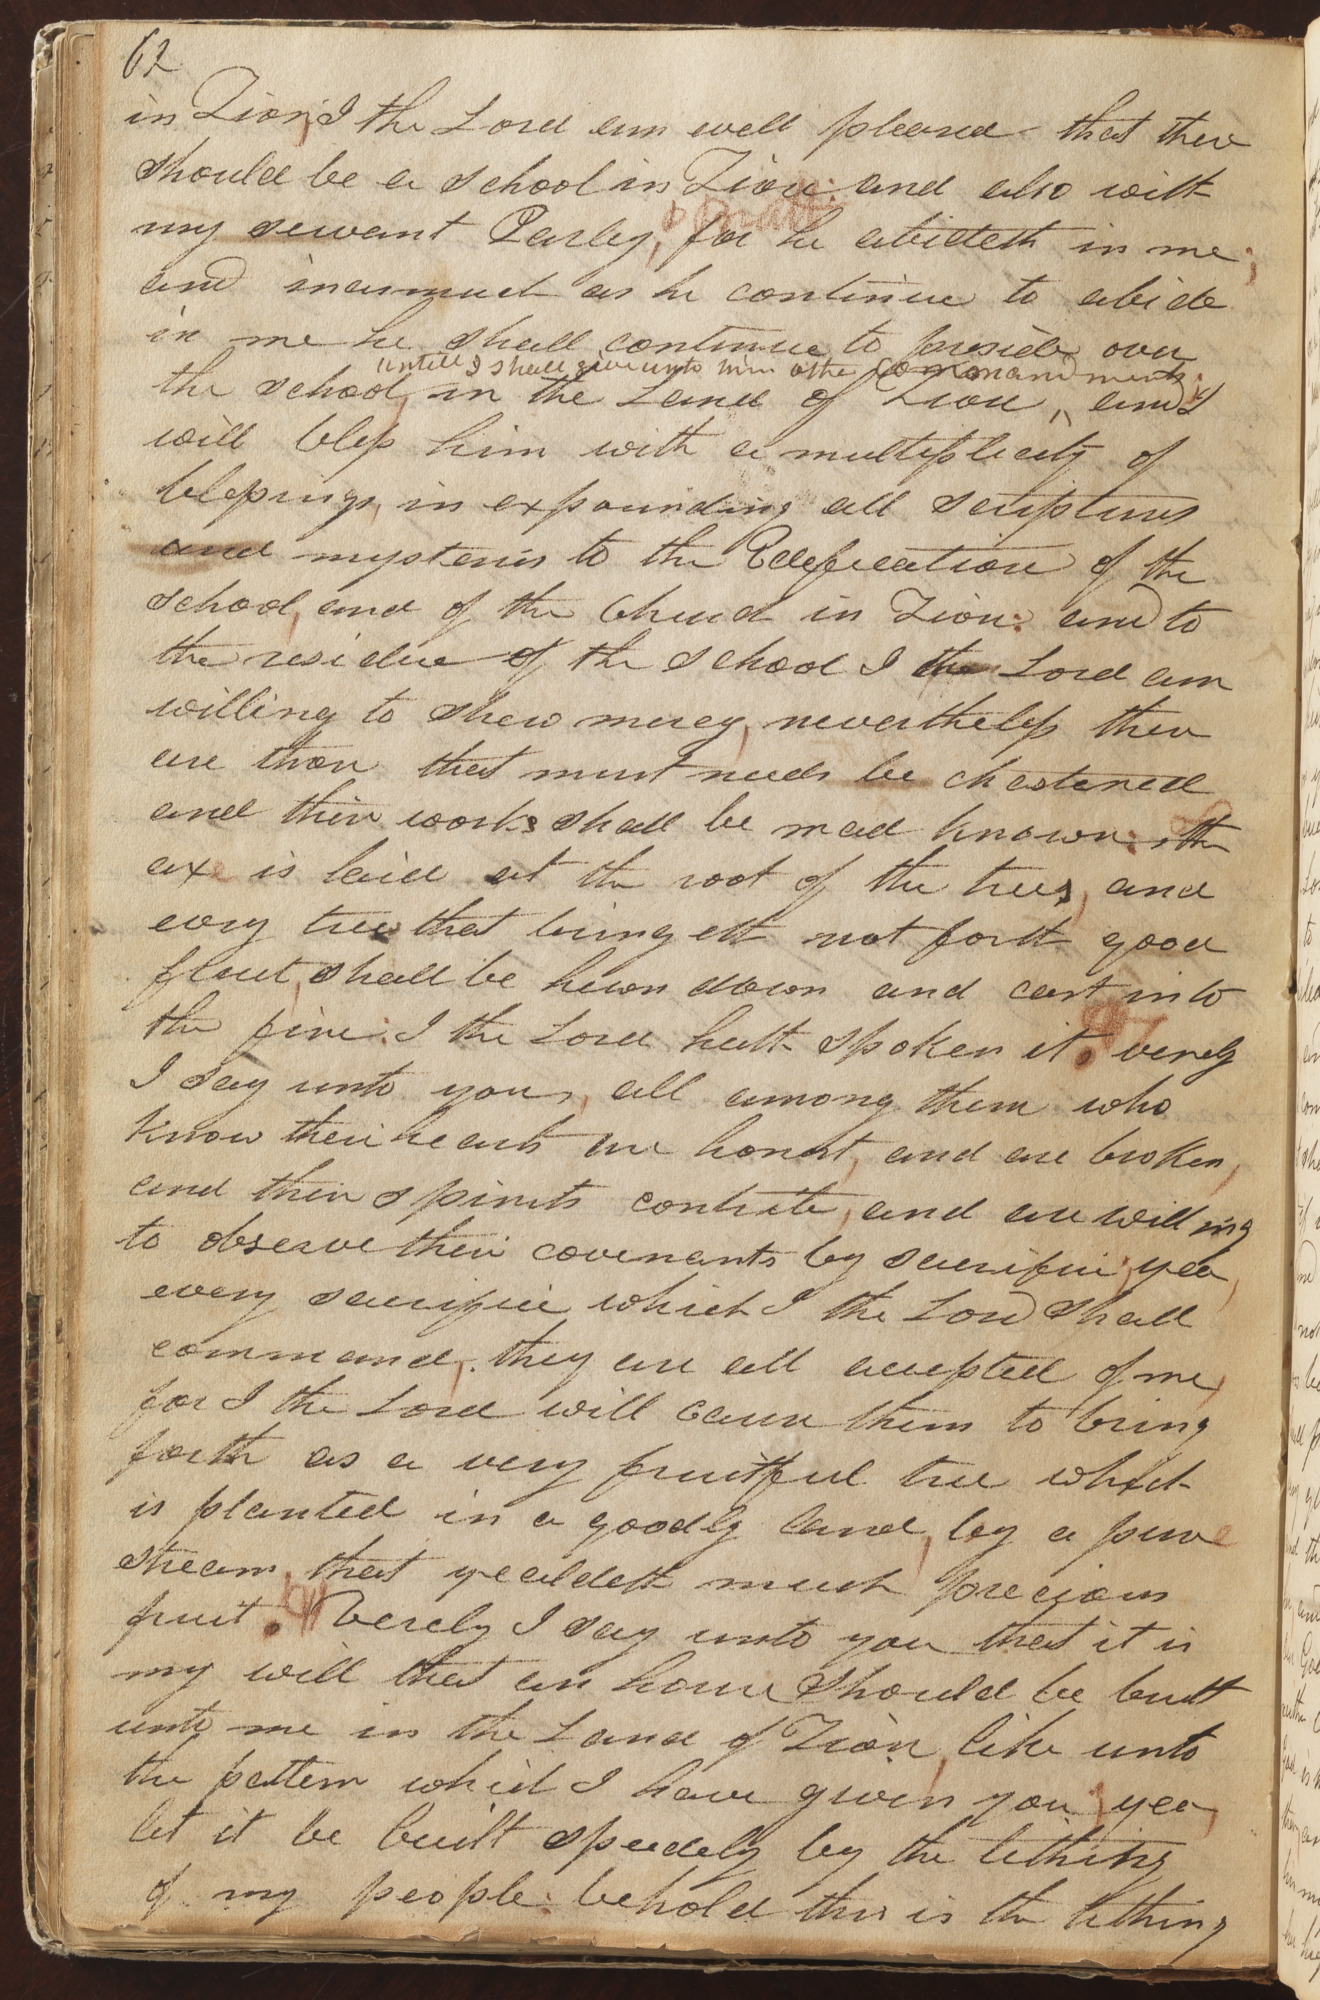 62
in Zion; I the Lord am well pleased that ther
should be a school in Zion: and also with
p pratt:
my servant Parley, for he abideth in me;
and inasmuch as he continue to abide
in me he shall continue to preside over
untill I shall give unto him othe commandments;
the school, in the Land of Zion ^ and I
will bless him with a multiplicity of
blessings, in expounding all scriptures
and mysteries to the Edefication of the
school, and of the Church in Zion: and to
the residue of the school I the Lord am
willing to shew mercy, nevertheless ther
are those that must needs be chastened
and their works shall be mad known: the
axe is laid at the root of the trees, and
evry tree that bringeth not forth good
fruit, shall be hewn down and cast into
the fire: I the Lord hath spoken it. verely
I say unto you, all among them who
know their hearts are honest, and are broken,
and their spirits contrite, and are willing
to observe their covenants by sacrifice; yea,
every sacrifice which I the Lord shall
command, they are all accepted of me,
for I the Lord will cause them to bring
forth as a very fruitful tree which
is planted in a goodly land, by a pure
stream, that yealdeth much precious
fruit. Verely I say unto you that it is
my will that an house should be built
unto me in the Land of Zion, like unto
the pattern which I have given you; yea,
let it be built speedely by the tithing
of my people: behold this is the tithing